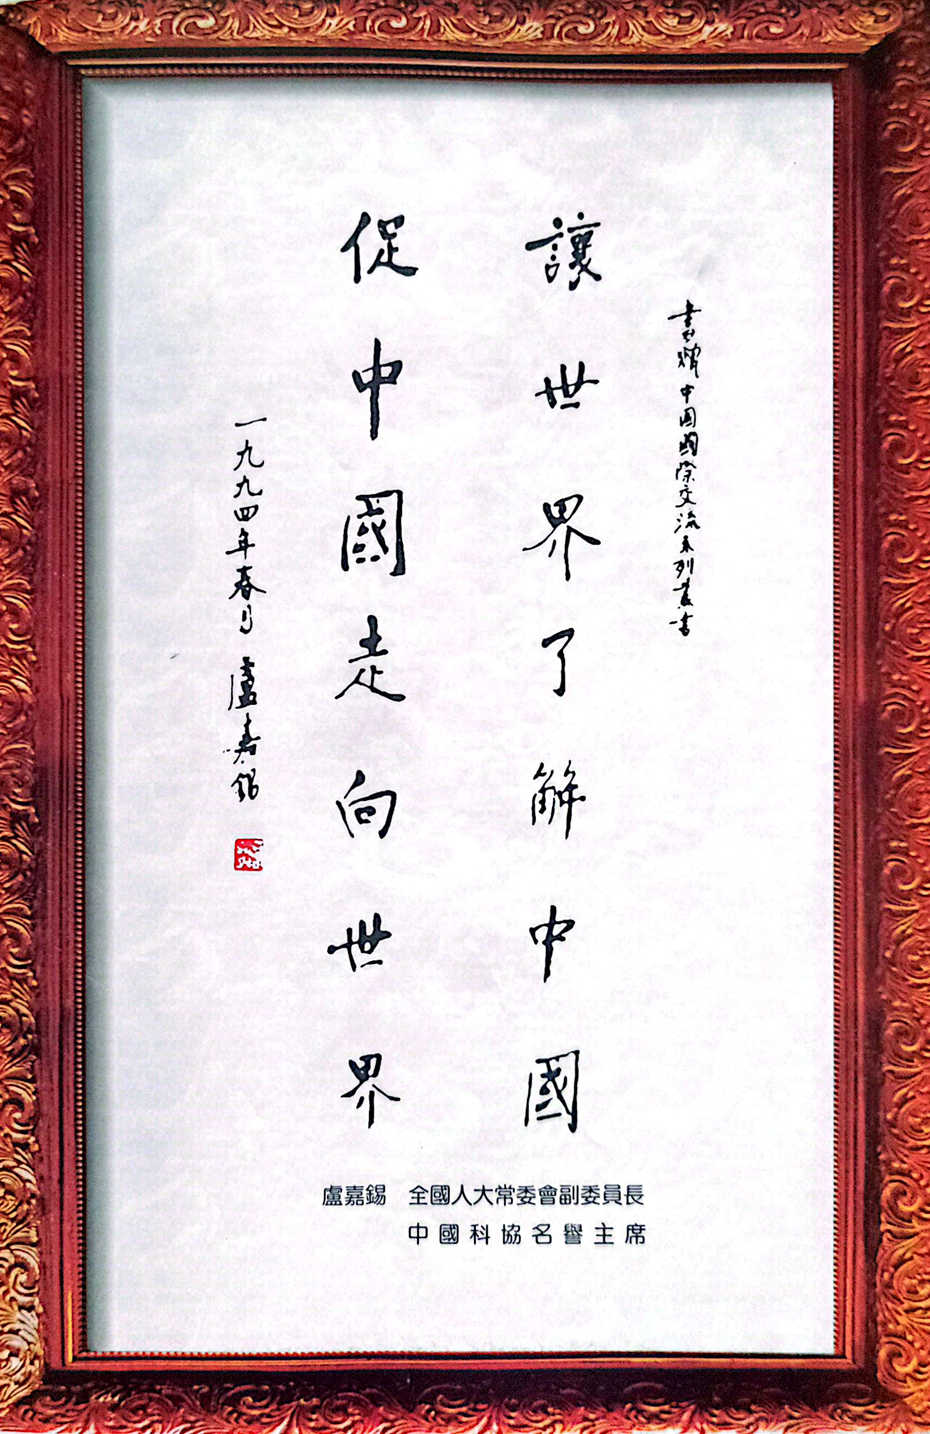 書贈中国國際交流系列叢書
讓世界了解中國
促中國走向世界
一九九四年春月 盧嘉錫
盧嘉錫 全國人大常委會副委員長
中國科協名譽主席